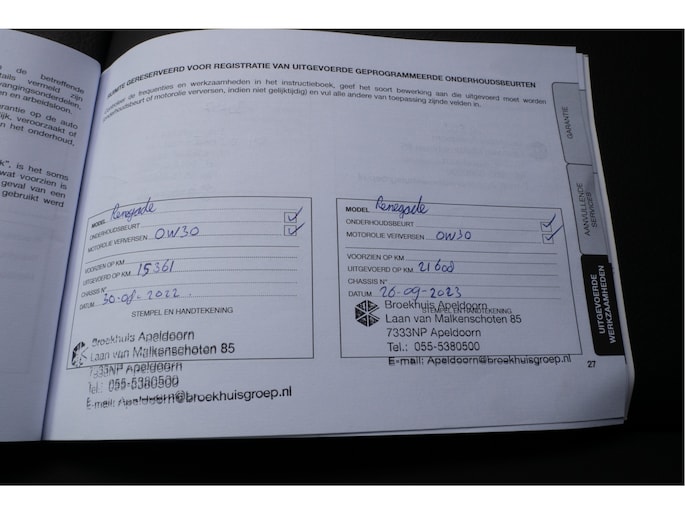 de betreffende
vermeld zijn
vangingsonderdelen,
en arbeidsloon.
garantie op de auto
veroorzaakt of
het onderhoud,
is het soms
wat voorzien is
geval van een
gebruikt werd
RUIMTE GERESERVEERD VOOR REGISTRATIE VAN UITGEVOERDE GEPROGRAMMEERDE ONDERHOUDSBEURTEN
Controleer de frequenties en werkzaamheden in het instructieboek, geef het soort bewerking aan die uitgevoerd moet worden
(onderhoudsbeurt of motorolie verversen, indien niet gelijktijdig) en vul alle andere van toepassing zijnde velden in.
MODEL Renegade
ONDERHOUDSBEURT
MOTOROLIE VERVERSEN 0W30
VOORZIEN OP KM
UITGEVOERD OP KM 15361
CHASSIS N°
DATUM 30-08-2022
STEMPEL EN HANDTEKENING
Broekhuis Apeldoorn
Laan van Malkenschoten 85
7333NP Apeldoorn
Tel.: 055-5380500
E-mail: Apeldoorn@broekhuisgroep.nl
MODEL Renegade
ONDERHOUDSBEURT
MOTOROLIE VERVERSEN 0W30
VOORZIEN OP KM
UITGEVOERD OP KM 21608
CHASSIS N°
DATUM 26-09-2023
STEMPEL EN HANDTEKENING
Broekhuis Apeldoorn
Laan van Malkenschoten 85
7333NP Apeldoorn
Tel.: 055-5380500
E-mail: Apeldoorn@broekhuisgroep.nl
27
GARANTIE
AANVULLENDE
SERVICES
UITGEVOERDE
WERKZAAMHEDEN